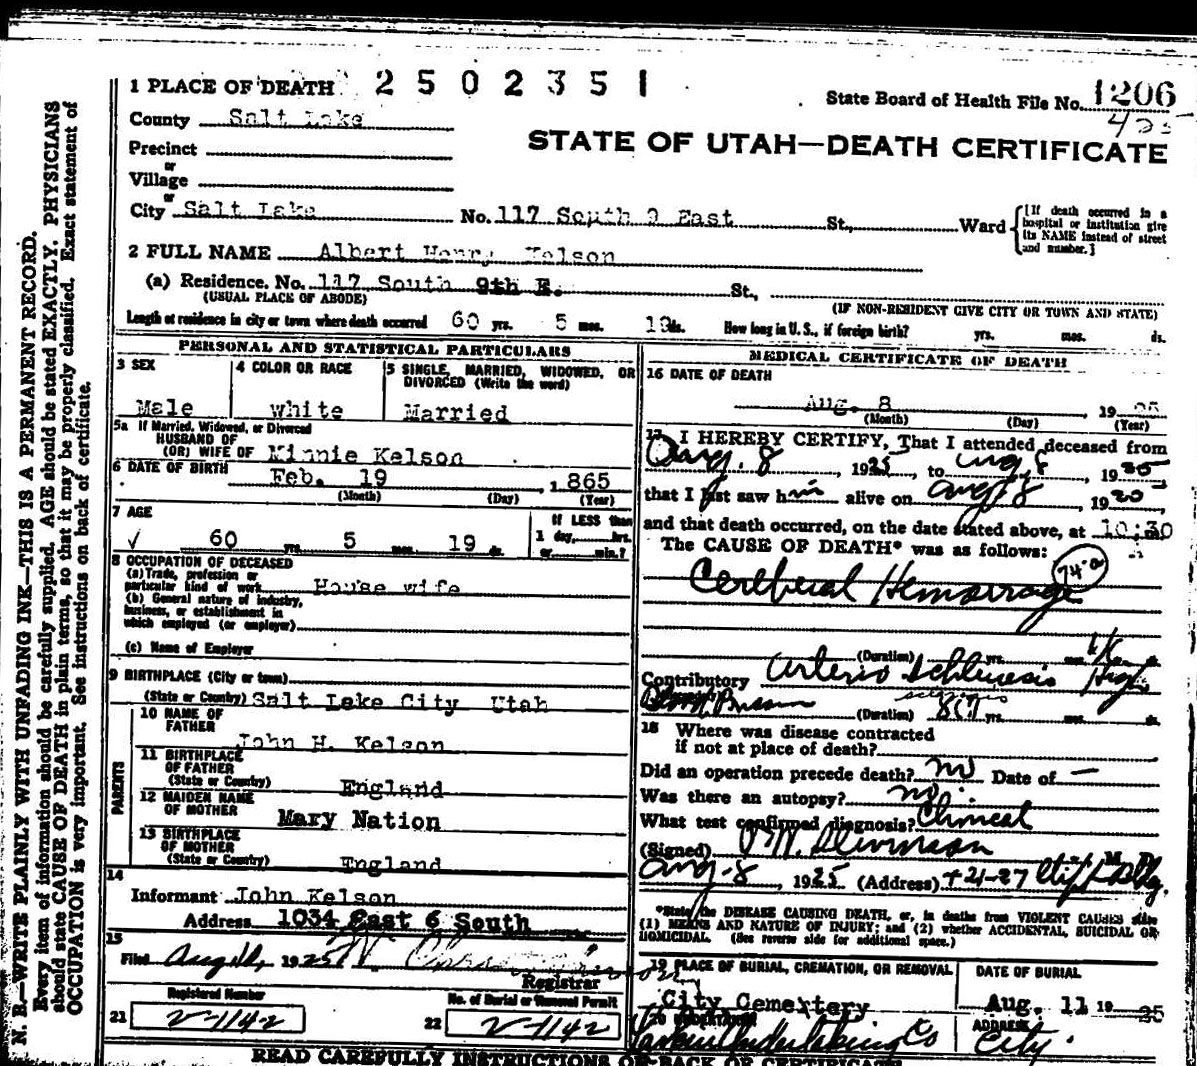 1 PLACE OF DEATH 2 5 0 2 3 5 1
State Board of Health File No. 1206
County Salt Lake
STATE OF UTAH—DEATH CERTIFICATE
Precinct
or
Village
or
City Salt Lake No. 117 South 9 East St., Ward [If death occurred in a hospital or institution give its NAME instead of street and number.]
2 FULL NAME Albert Henry Kelson
(a) Residence. No. 117 South 9th E. St.,
(USUAL PLACE OF ABODE) (IF NON-RESIDENT GIVE CITY OR TOWN AND STATE)
Length of residence in city or town where death occurred 60 yrs. 5 mos. 19 ds. How long in U. S., if foreign birth? yrs. mos. ds.
PERSONAL AND STATISTICAL PARTICULARS
3 SEX 4 COLOR OR RACE 5 SINGLE, MARRIED, WIDOWED, OR DIVORCED (Write the word)
Male White Married
5a If Married, Widowed, or Divorced
HUSBAND OF
(OR) WIFE OF Minnie Kelson
6 DATE OF BIRTH Feb. 19, 1865
(Month) (Day) (Year)
7 AGE If LESS than
√ 60 yrs. 5 mos. 19 ds. 1 day, hrs.
or min.?
8 OCCUPATION OF DECEASED
(a) Trade, profession or
particular kind of work House wife
(b) General nature of industry,
business, or establishment in
which employed (or employer)
(c) Name of Employer
9 BIRTHPLACE (City or town)
(State or Country) Salt Lake City Utah
PARENTS
10 NAME OF
FATHER John H. Kelson
11 BIRTHPLACE
OF FATHER
(State or Country) England
12 MAIDEN NAME
OF MOTHER Mary Nation
13 BIRTHPLACE
OF MOTHER
(State or Country) England
14
Informant John Kelson
Address 1034 East 6 South
15
Filed Aug 11, 1925
Registrar
Registered Number No. of Burial or Removal Permit
21 V-1142 22 V-1142
MEDICAL CERTIFICATE OF DEATH
16 DATE OF DEATH
Aug. 8, 1925
(Month) (Day) (Year)
17 I HEREBY CERTIFY, That I attended deceased from
Aug. 8, 1925, to Aug 8, 1925
that I last saw him alive on Aug 8, 1925
and that death occurred, on the date stated above, at 10:30
The CAUSE OF DEATH* was as follows:
74-a
Cerebral Hemorrage
(Duration) yrs. mos. ds.
Contributory Arterio High
Blood
(Duration) yrs. mos. ds.
18 Where was disease contracted
if not at place of death?
Did an operation precede death? no Date of —
Was there an autopsy? no.
What test confirmed diagnosis? Clinical
(Signed) M. D.
Aug-8, 1925 (Address) Bldg.
*State the DISEASE CAUSING DEATH, or, in deaths from VIOLENT CAUSES state
(1) MEANS AND NATURE OF INJURY; and (2) whether ACCIDENTAL, SUICIDAL OR
HOMICIDAL. (See reverse side for additional space.)
19 PLACE OF BURIAL, CREMATION, OR REMOVAL DATE OF BURIAL
City Cemetery Aug. 11 1925
20 UNDERTAKER ADDRESS
Undertaking Co City.
READ CAREFULLY INSTRUCTIONS ON BACK OF CERTIFICATE
N. B.—WRITE PLAINLY WITH UNFADING INK—THIS IS A PERMANENT RECORD.
Every item of information should be carefully supplied. AGE should be stated EXACTLY. PHYSICIANS
should state CAUSE OF DEATH in plain terms, so that it may be properly classified. Exact statement of
OCCUPATION is very important. See instructions on back of certificate.